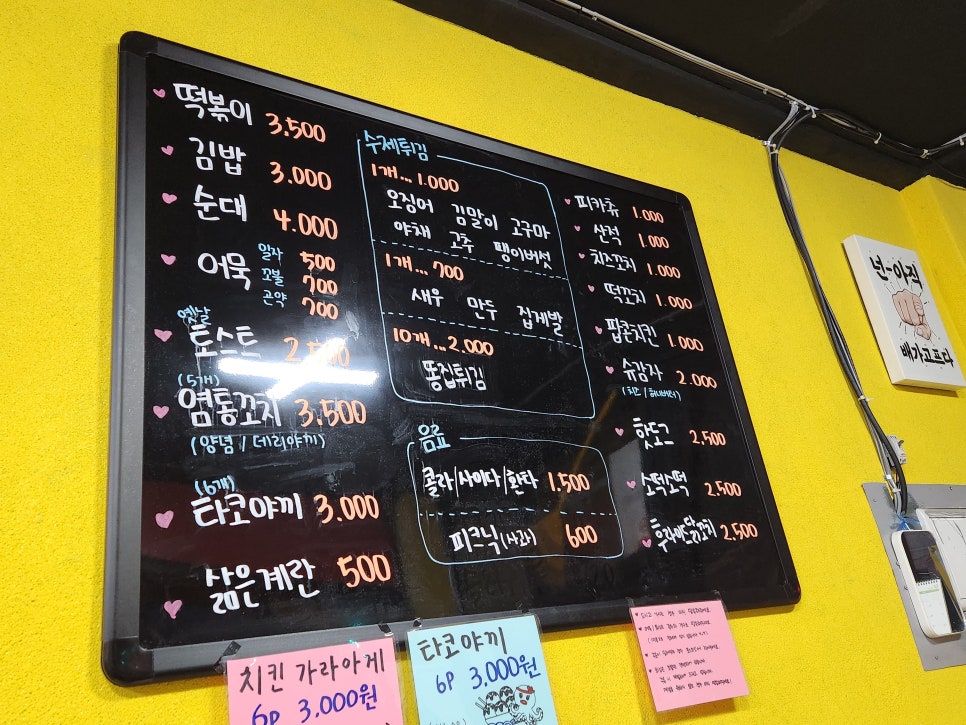 떡볶이 3.500
김밥 3.000
순대 4.000
어묵
일자 500
꼬불 700
곤약 700
옛날
토스트 2.500
(5개)
염통꼬치 3.500
(양념 / 데리야끼)
(6개)
타코야끼 3.000
삶은계란 500
수제튀김
1개... 1.000
오징어 김말이 고구마
야채 고추 팽이버섯
1개... 700
새우 만두 집게발
10개...2.000
똥집튀김
음료
콜라/사이다/환타 1.500
피크닉(사과) 600
피카츄 1.000
산적 1.000
치즈꼬치 1.000
떡꼬치 1.000
팝콘치킨 1.000
슈감자 2.000
(치즈 / 허니버터)
핫도그 2.500
소떡소떡 2.500
후라이드닭꼬치 2.500
넌-아직
배가고프다
치킨 가라아게
6p 3.000원
타코야끼
6p 3.000원